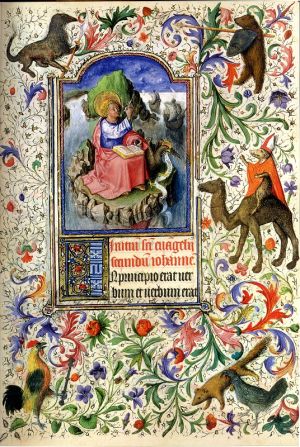 Initiū scī euāgelij
secundū Iohanne.
IN principio erat ver
bum et verbum erat